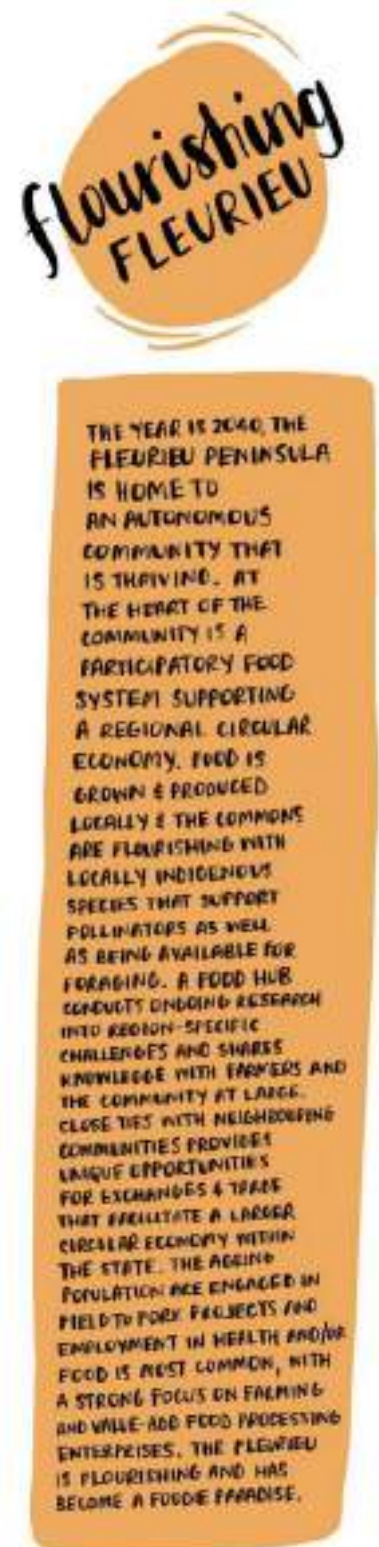 flourishing
FLEURIEU
THE YEAR IS 2040, THE
FLEURIEU PENINSULA
IS HOME TO
AN AUTONOMOUS
COMMUNITY THAT
IS THRIVING. AT
THE HEART OF THE
COMMUNITY IS A
PARTICIPATORY FOOD
SYSTEM SUPPORTING
A REGIONAL CIRCULAR
ECONOMY. FOOD IS
GROWN & PRODUCED
LOCALLY & THE COMMONS
ARE FLOURISHING WITH
LOCALLY INDIGENOUS
SPECIES THAT SUPPORT
POLLINATORS AS WELL
AS BEING AVAILABLE FOR
FORAGING. A FOOD HUB
CONDUCTS ONGOING RESEARCH
INTO REGION-SPECIFIC
CHALLENGES AND SHARES
KNOWLEDGE WITH FARMERS AND
THE COMMUNITY AT LARGE.
CLOSE TIES WITH NEIGHBOURING
COMMUNITIES PROVIDES
UNIQUE OPPORTUNITIES
FOR EXCHANGES & TRADE
THAT FACILITATE A LARGER
CIRCULAR ECONOMY WITHIN
THE STATE. THE AGEING
POPULATION ARE ENGAGED IN
FIELD TO FORK PROJECTS AND
EMPLOYMENT IN HEALTH AND/OR
FOOD IS MOST COMMON, WITH
A STRONG FOCUS ON FARMING
AND VALUE-ADD FOOD PROCESSING
ENTERPRISES. THE FLEURIEU
IS FLOURISHING AND HAS
BECOME A FOODIE PARADISE.